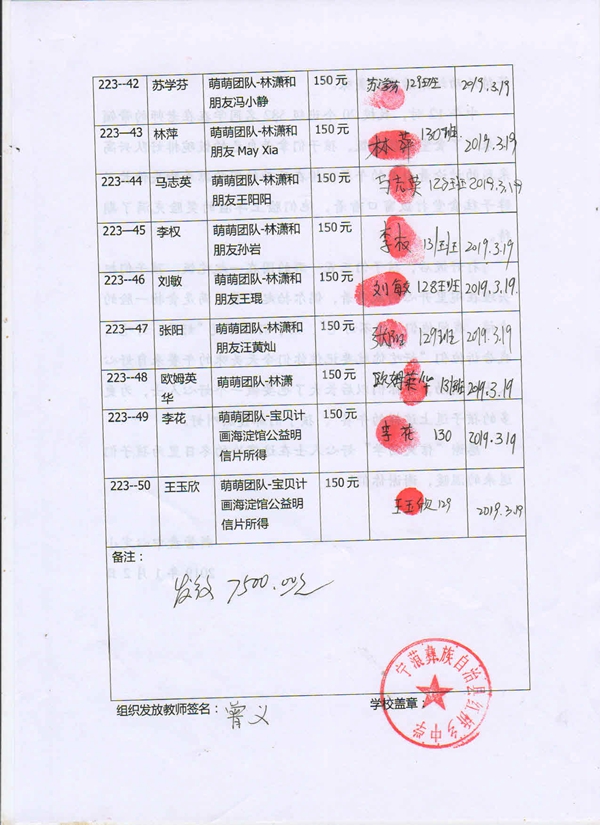 223--42 苏学芬 萌萌团队-林潇和 150元 苏学芬 129班 2019.3.19
朋友冯小静
223—43 林萍 萌萌团队-林潇和 150元 林萍 130班 2019.3.19
朋友 May Xia
223--44 马志英 萌萌团队-林潇和 150元 马志英 129班 2019.3.19
朋友王阳阳
223—45 李权 萌萌团队-林潇和 150元 李权 131班 2019.3.19
朋友孙岩
223--46 刘敏 萌萌团队-林潇和 150元 刘敏 128班 2019.3.19
朋友王琨
223—47 张阳 萌萌团队-林潇和 150元 张阳 129班 2019.3.19
朋友汪黄灿
223--48 欧姆英 萌萌团队-林潇 150元 欧姆英华 131班 2019.3.19
华
223—49 李花 萌萌团队-宝贝计 150元 李花 130 2019.3.19
画海淀馆公益明
信片所得
223--50 王玉欣 萌萌团队-宝贝计 150元 王玉欣 129 2019.3.19
画海淀馆公益明
信片所得
备注：
发放 7500.00元
宁蒗彝族自治县红桥乡中学
组织发放教师签名： 曾义 学校盖章：